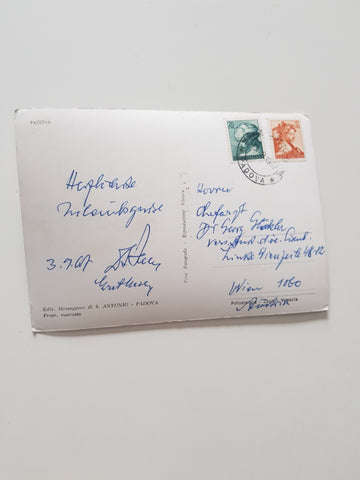 PADOVA
Herzlichste
Urlaubsgrüsse
3.9.67
Edit. Messaggero di S. ANTONIO - PADOVA
Propr. riservata
Vera Fotografia - Riproduzione Vietata
PADOVA
Herrn
Chefarzt
Dr Georg
Linke Wienzeile 48-52
Wien 1060
Austria
Venezia